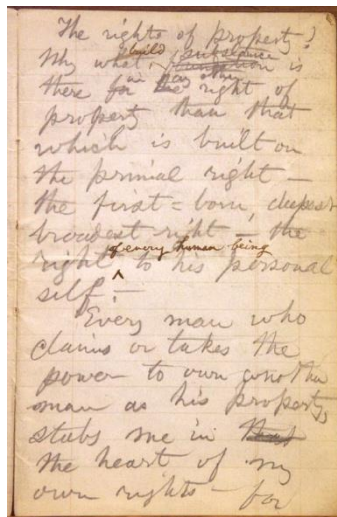 The rights of property!
Why what build substance is
there in any other right of
property than that
which is built on
the primal right —
the first-born, deepest
broadest right — the
right of every human being to his personal
self. —
Every man who
claims or takes the
power to own another
man as his property,
stabs me in that
the heart of my
own rights — for